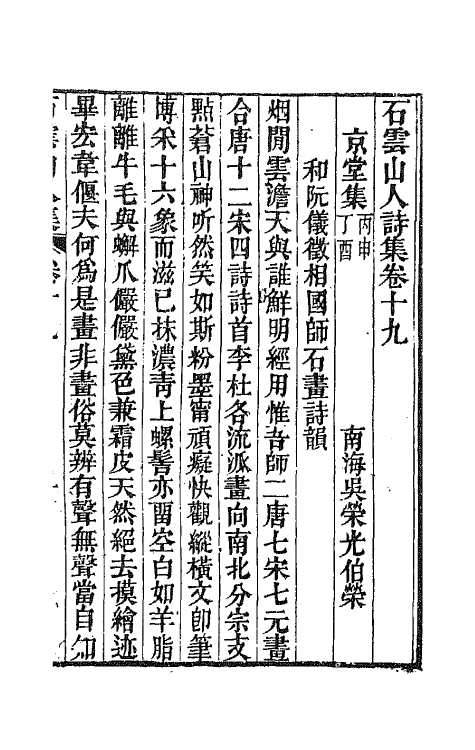 石雲山人詩集卷十九
京堂集丙申丁酉 南海吳榮光伯榮
和阮儀徵相國師石畫詩韻
烟閒雲澹天與誰鮮明經用惟吾師二唐七宋七元畫
合唐十二宋四詩詩首李杜各流派畫向南北分宗支
點蒼山神听然笑如斯粉墨甯頑癡快觀縱橫文卽筆
博采十六象而滋已抹濃靑上螺髻亦留空白如羊脂
離離牛毛與蠏爪儼儼黛色兼霜皮天然絕去摸繪迹
畢宏韋偃夫何爲是畫非畫俗莫辨有聲無聲當自知